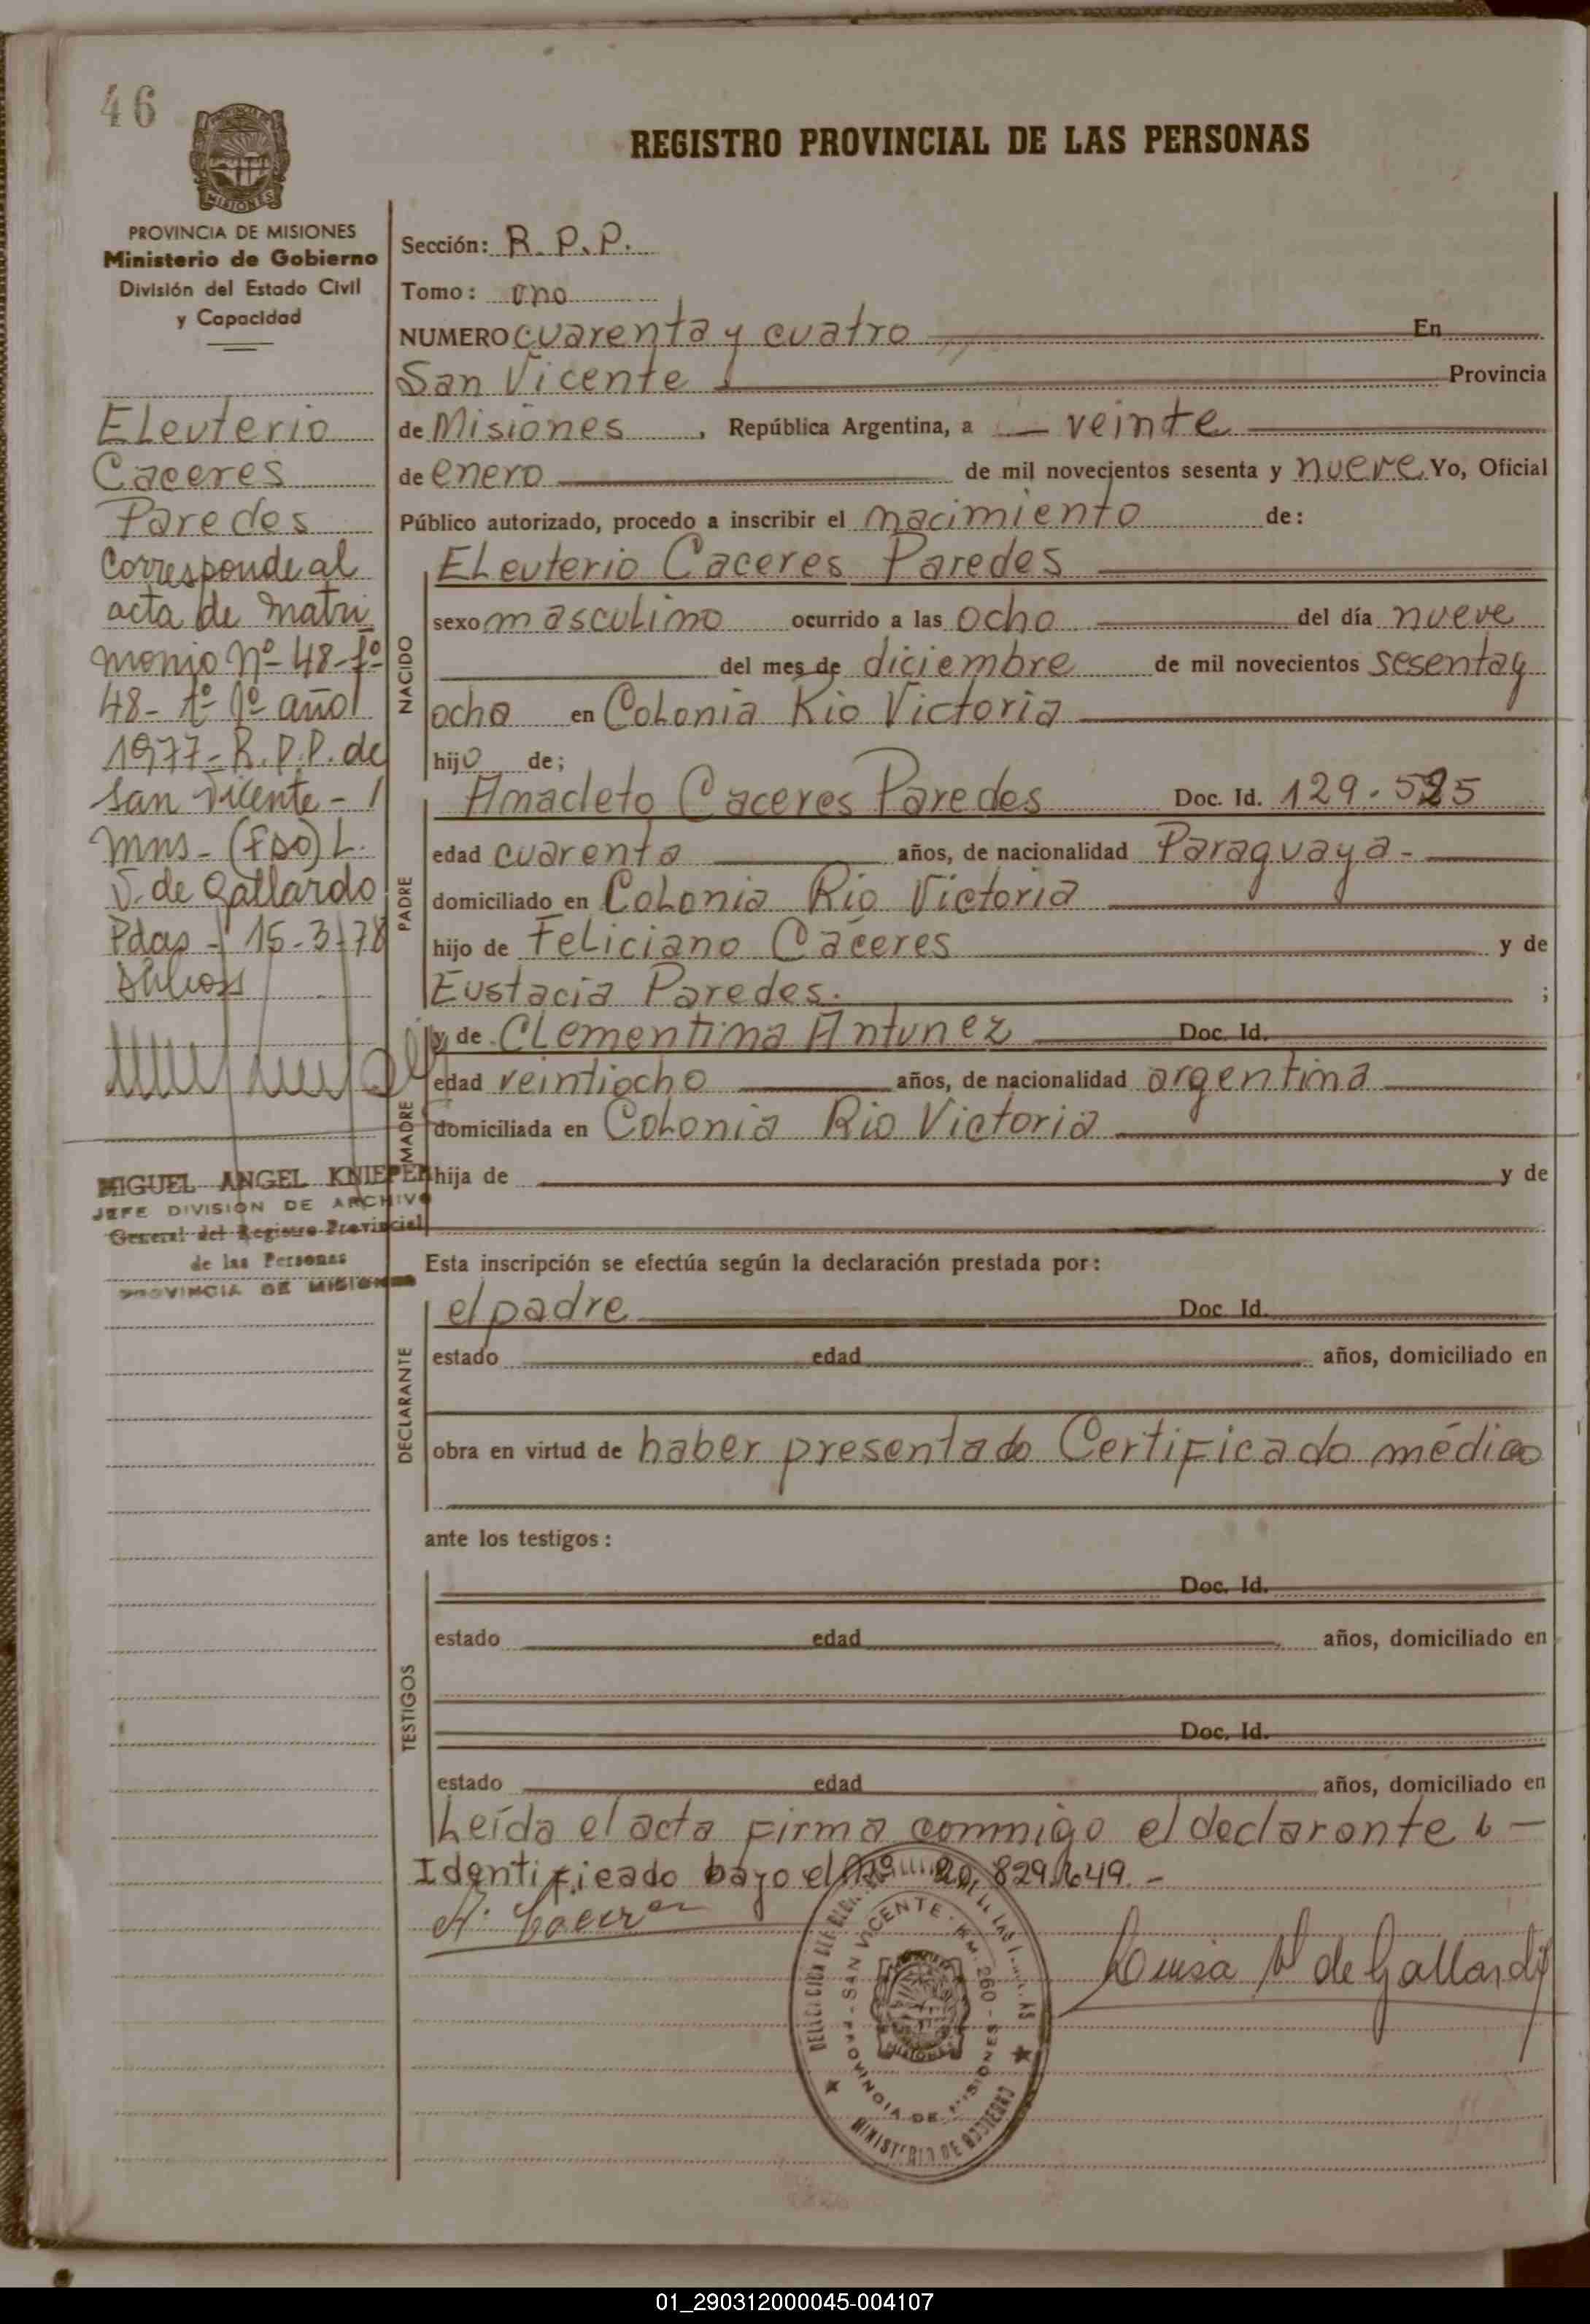 46
REGISTRO PROVINCIAL DE LAS PERSONAS
MISIONES
PROVINCIA DE MISIONES
Ministerio de Gobierno
División del Estado Civil
y Capacidad
Eleuterio
Caceres
Paredes
Corresponde al
acta de matri
monio Nº 48-fº
48- tº 1º año
1977- R.P.P. de
San Vicente -
Mns - (FDO) L.
V. de Gallardo
Pdas - 15-3-78
MIGUEL ANGEL KNIEPER
JEFE DIVISION DE ARCHIVO
General del Registro Provincial
de las Personas
PROVINCIA DE MISIONES
Sección: R.P.P.
Tomo: Uno
NUMERO cuarenta y cuatro En
San Vicente Provincia
de Misiones, República Argentina, a veinte
de enero de mil novecientos sesenta y nueve Yo, Oficial
Público autorizado, procedo a inscribir el nacimiento de:
NACIDO
Eleuterio Caceres Paredes
sexo masculino ocurrido a las ocho del día nueve
del mes de diciembre de mil novecientos sesenta y
ocho en Colonia Rio Victoria
hijo de;
PADRE
Anacleto Caceres Paredes Doc. Id. 129.525
edad cuarenta años, de nacionalidad Paraguaya -
domiciliado en Colonia Rio Victoria
hijo de Feliciano Cáceres y de
Eustacia Paredes. ;
MADRE
y de Clementina Antunez Doc. Id.
edad veintiocho años, de nacionalidad argentina
domiciliada en Colonia Rio Victoria
hija de y de
Esta inscripción se efectúa según la declaración prestada por:
DECLARANTE
el padre Doc. Id.
estado edad años, domiciliado en
obra en virtud de haber presentado Certificado médico
ante los testigos:
TESTIGOS
Doc. Id.
estado edad años, domiciliado en
Doc. Id.
estado edad años, domiciliado en
Leída el acta firma conmigo el declarante
Identificado bajo el Nº 20.829.649.-
A. Caceres
Luisa V de Gallardo
SAN VICENTE - KM. 260 - PROVINCIA DE MISIONES
MINISTERIO DE GOBIERNO
MISIONES
01_290312000045-004107